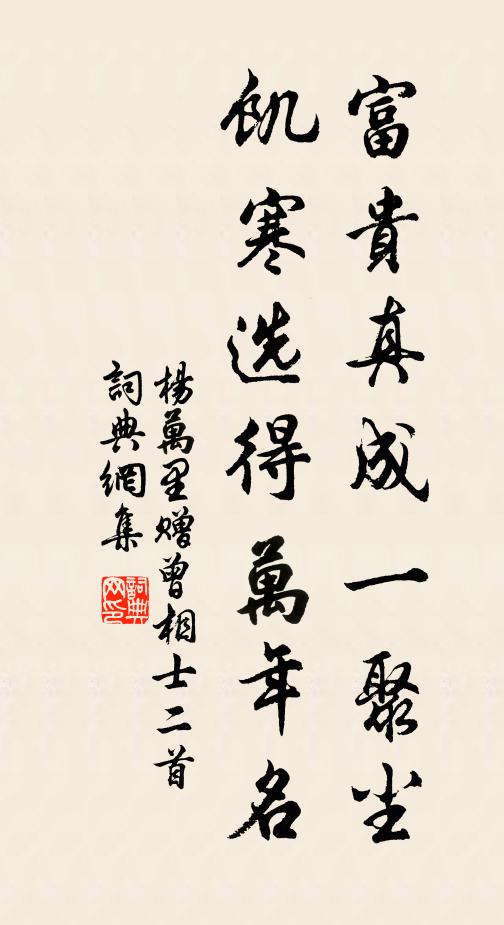 富貴真成一聚尘
飢寒选得萬年名
楊萬里赠曾相士二首
詞典網集
詞典网印